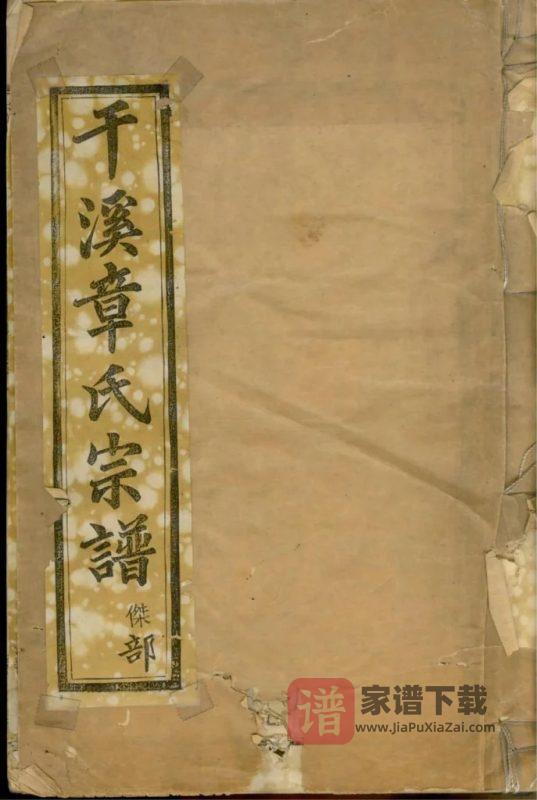 干溪章氏宗譜
傑部
谱 家谱下载
www.JiaPuXiaZai.com